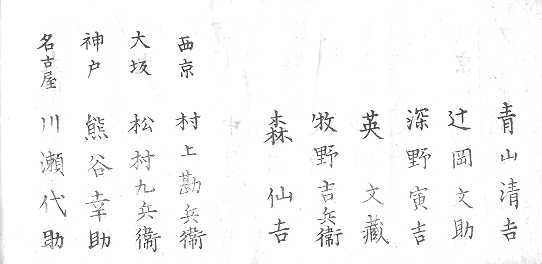 青山清吉
辻岡文助
深野寅吉
英文藏
牧野吉兵衞
森仙吉
西京 村上勘兵衞
大坂 松村九兵衞
神戸 熊谷幸助
名古屋 川瀬代助